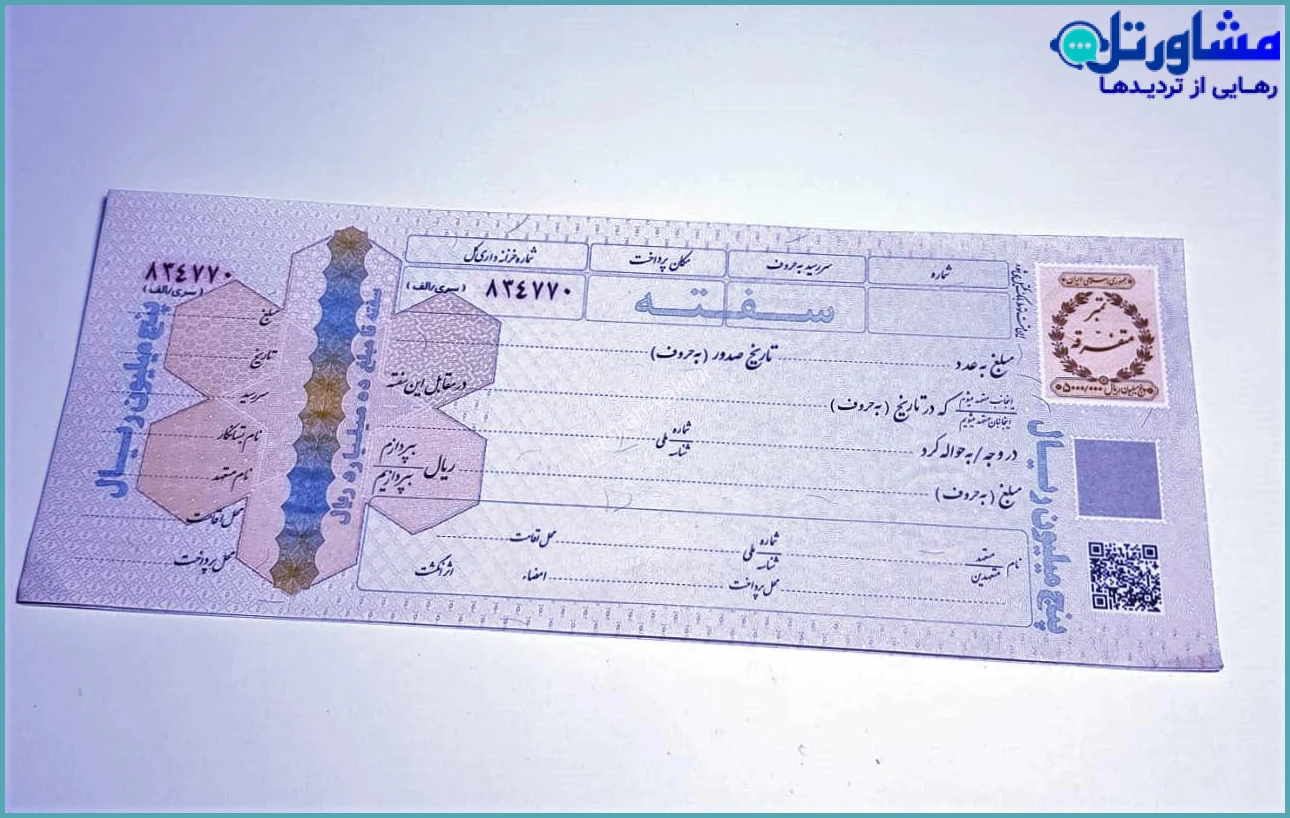 مشاورتل
رهایی از تردیدها
جمهوری اسلامی ایران
تمبر
متفرقه
پنج میلیون ریال ۵۰۰۰/۰۰۰
شماره
سررسید به حروف
مکان پرداخت
شماره خزانه داری کل
سفته
۸۳٤۷۷۰ (سری/الف)
مبلغ به عدد
تاریخ صدور (به حروف)
اینجانب متعهد میشوم
اینجانبان متعهد میشویم
که در تاریخ (به حروف)
در مقابل این سفته
در وجه / به حواله کرد
شماره ملی
شناسه
مبلغ (به حروف)
ریال
بپردازم
بپردازیم
نام
متعهد
متعهدین
شماره ملی
شناسه
محل اقامت
محل پرداخت
امضاء
اثر انگشت
پنج میلیون ریال
سفته تا مبلغ ده میلیارد ریال
۸۳٤۷۷۰
(سری/الف)
مبلغ
تاریخ
سررسید
نام بستانکار
نام متعهد
محل اقامت
محل پرداخت
پنج میلیون ریال